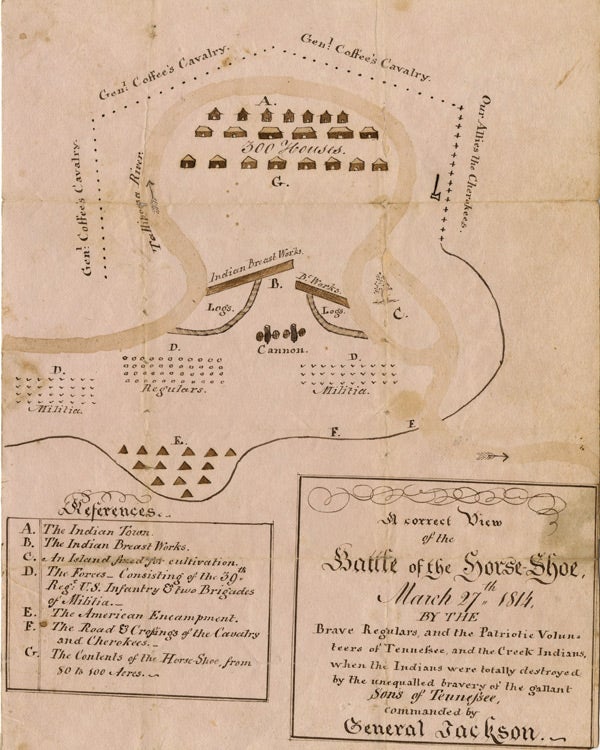 Genl Coffee's Cavalry.
Genl Coffee's Cavalry.
Genl Coffee's Cavalry.
Our Allies the Cherokees.
A.
300 Houses.
G.
River
Indian Breast Works.
B.
Bt Works.
Logs.
Logs.
C.
Cannon.
D.
Militia.
D.
Regulars.
D.
Militia.
E.
F.
E.
References.
A. The Indian Town.
B. The Indian Breast Works.
C. An Island fixed for cultivation.
D. The Forces – Consisting of the 39th
Regt U.S. Infantry & two Brigades
of Militia.
E. The American Encampment.
F. The Road & Croſsings of the Cavalry
and Cherokees.
G. The Contents of the Horse-Shoe, from
80 to 100 Acres.
A correct View
of the
Battle of the Horse-Shoe,
March 27th 1814,
BY THE
Brave Regulars, and the Patriotic Volun=
teers of Tenneſsee, and the Creek Indians,
when the Indians were totally destroyed
by the unequalled bravery of the gallant
Sons of Tenneſsee,
commanded by
General Jackson.